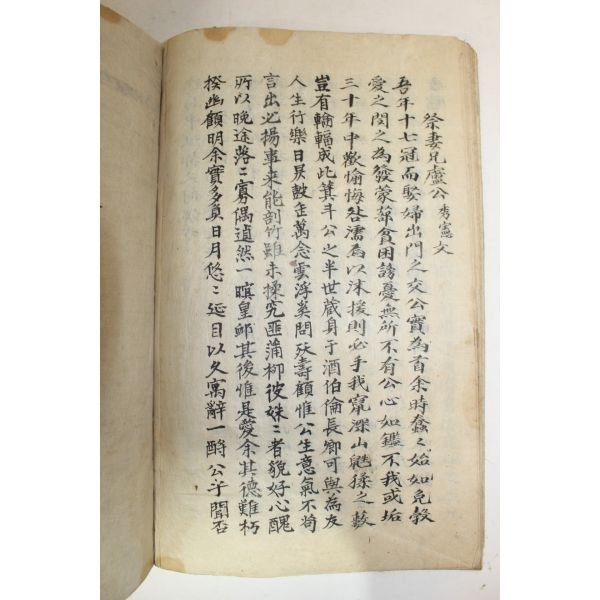 祭妻兄盧公秀憲文
吾年十七冠而娶婦出門之交公實為首余時蠢〻始如免㝅
愛之閔之為發蒙蔀貧困謗憂無所不有公心如鑑不我或垢
三十年中歡愉悔咎濡為以沫援則必手我竄深山鼪猱之藪
豈有輪輻成此箕斗公之半世蔵身于酒伯倫長卿可與為友
人生行樂日昃鼓缶萬念雲浮奚問殀壽顧惟公生意氣不苟
言出必揚事来能剖竹雖未揉究匪蒲柳彼姝〻者貌好心醜
所以晚途落〻寡偶逌然一瞑皇卹其後惟是愛余其德難朽
揆幽顧明余實多負日月悠〻逝目以久寓辭一酹公乎聞否